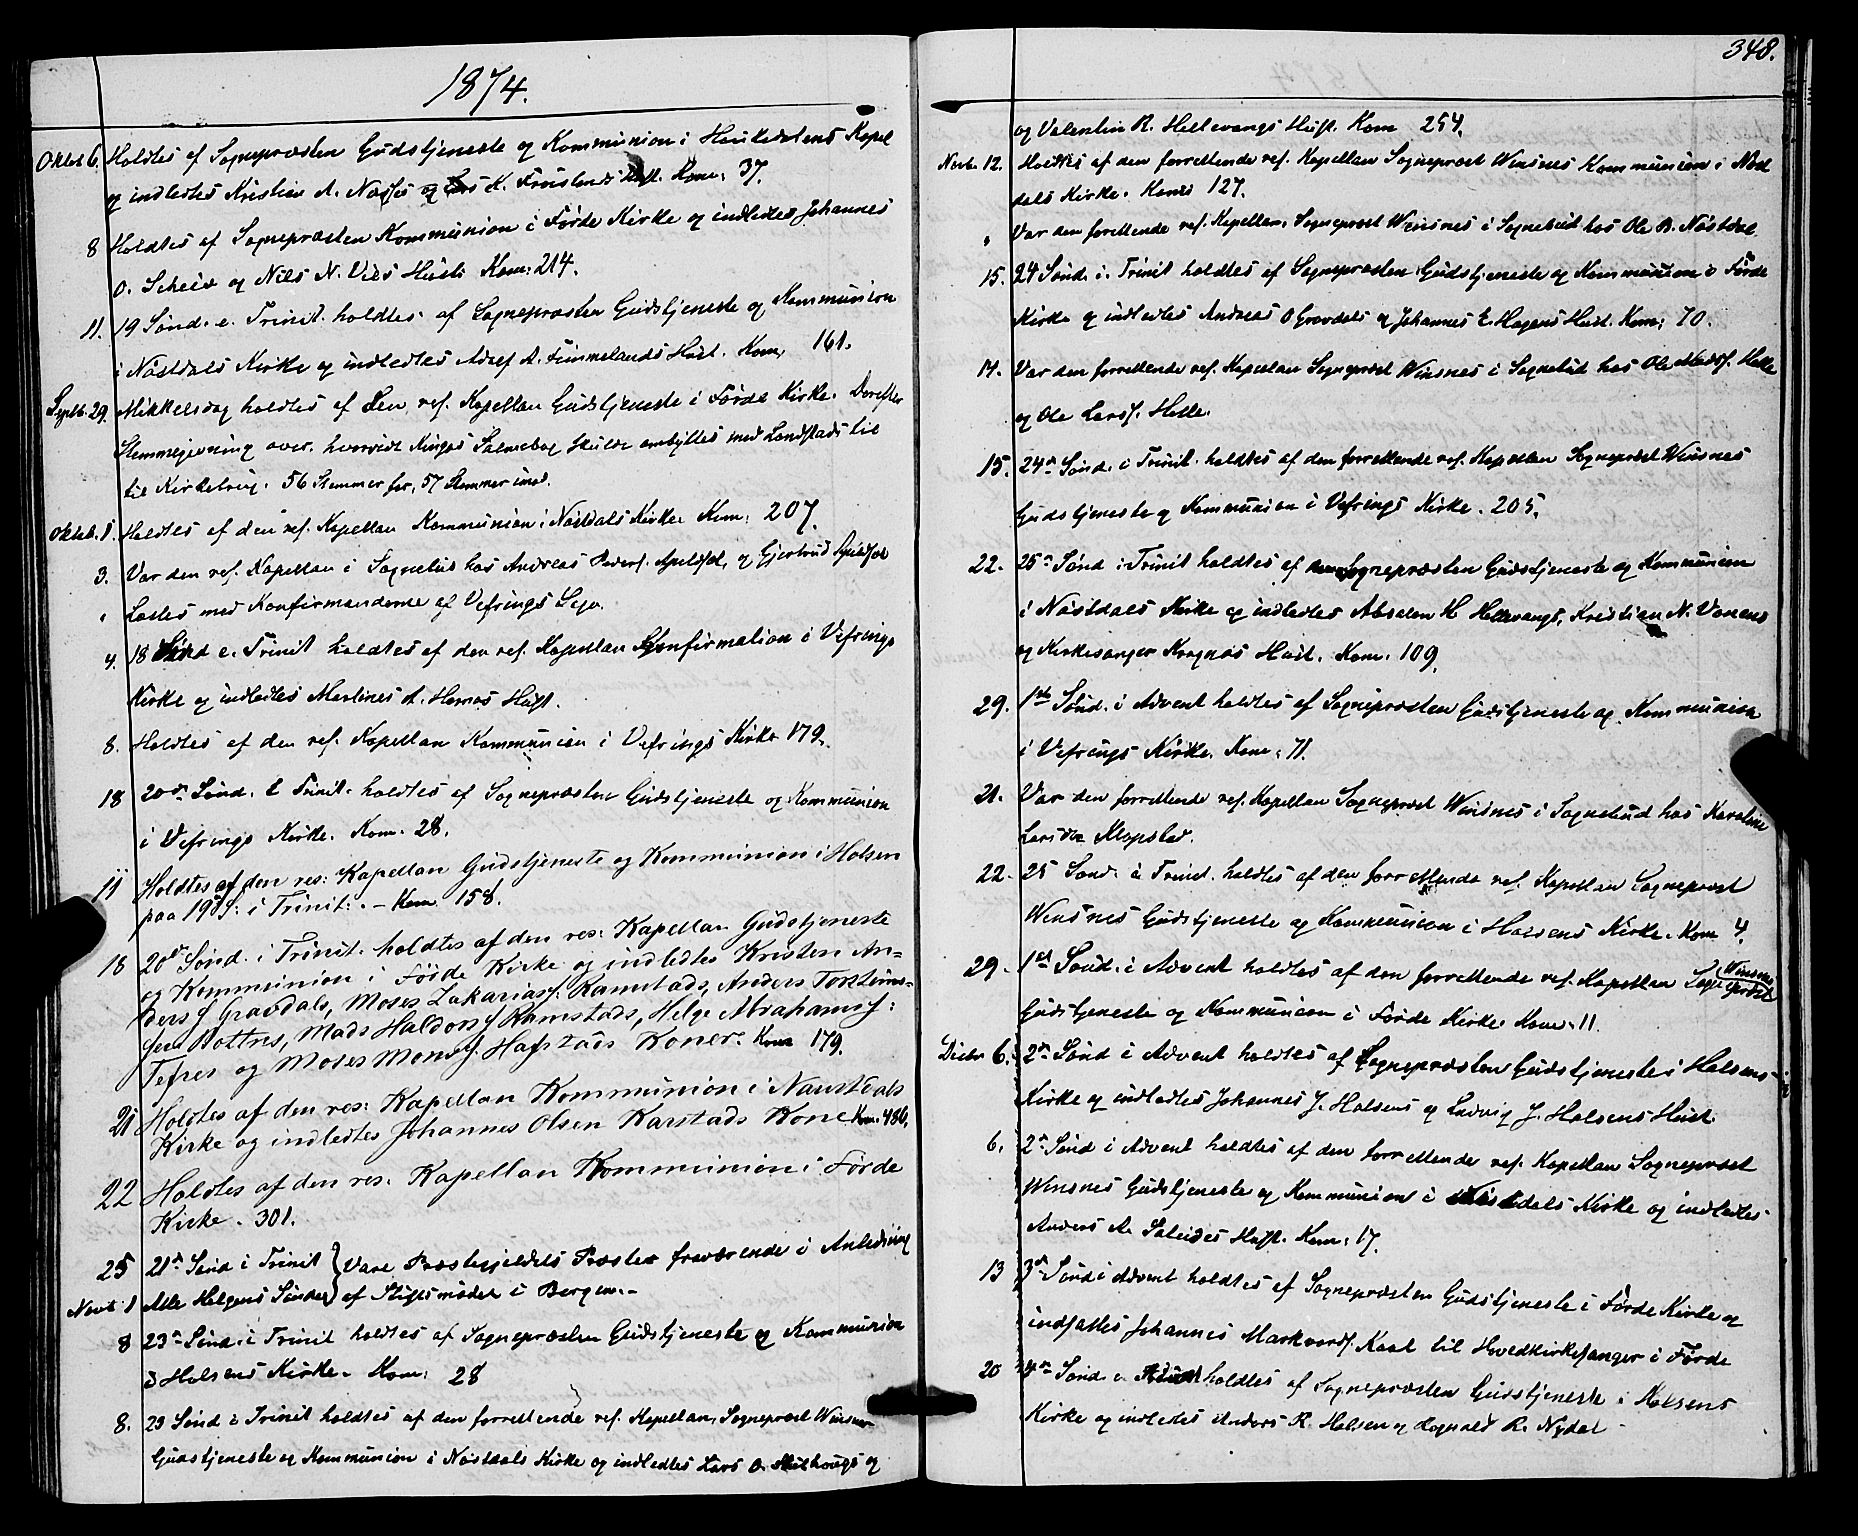 1874.
Oktob 6. Holdtes af Sognepræsten Gudstjeneste og Kommunion i Kapel
og indledtes Kristian A. og K. Kom: 37.
8 Holdtes af Sognepræsten Kommunion i Førde Kirke og indledtes Johannes
O. og Nils N. Vies Hust. Kom: 214.
11. 19 Sønd. e. Trinit. holdtes af Sognepræsten Gudstjeneste og Kommunion
i Nøstdals Kirke og indledtes A. Fimmelands Hust. Kom. 161.
Septb. 29. Mikkelsdag holdtes af den res. Kapellan Gudstjeneste i Førde Kirke. Derefter
Stemmegivning over, hvorvidt Kingos Salmebog skulde ombyttes med Landstads til
til Kirkebrug. 56 Stemmer for, 57 Stemmer imod.
Oktob. 1. Holdtes af den res. Kapellan Kommunion i Nøstdals Kirke Kom: 207.
3. Var den res. Kapellan i Sognebud hos Andreas Peders. og Gjertrud
" Læstes med Konfirmanderne af Vefrings Sogn.
4. 18 Sønd e. Trinit holdtes af den res. Kapellan Konfirmation i Vefrings
Kirke og indledtes Martines A. Hornes Hust.
8. Holdtes af den res. Kapellan Kommunion i Vefrings Kirke 179.
18 20de Sønd. e Trinit. holdtes af Sognepræsten Gudstjeneste og Kommunion
i Vefrings Kirke. Kom. 28.
11 Holdtes af den res: Kapellan Gudstjeneste og Kommunion i Holsen
paa 19 S: i Trinit: . – Kom 158.
18 20de Sønd. i Trinit. holdtes af den res: Kapellan Gudstjeneste
og Kommunion i Førde Kirke og indledtes Kristen An-
ders. Gravdals, Moses Zakarias. Ramstads, Anders
Mads Haldors. Ramstads, Helge Abrahams:
Tefres og Moses Mons. Hafstads Koner. Kom 179.
21 Holdtes af den res: Kapellan Kommunion i Naustdals
Kirke og indledtes Johannes Olsen Karstads Kone Kom. 486.
22 Holdtes af den res. Kapellan Kommunion i Førde
Kirke. 301.
25 21de Sønd i Trinit } Vare Præstegjeldets Præster fraværende i Anledning
Novb 1 Alle Helgens Søndag } af Stiftsmødet i Bergen.–
8 23de Sønd. i Trinit holdtes af Sognepræsten Gudstjeneste og Kommunion
i Holsens Kirke. Kom: 28
8. 23 Sønd i Trinit holdtes af den forrettende res. Kapellan, Sogneprest Winsnes
Gudstjeneste og Kommunion i Nøstdals Kirke og indledtes Lars O. og
348.
og Valentin R. Hellevangs Hust. Kom 254.
Novb. 12. Holdtes af den forrettende res. Kapellan Sogneprest Winsnes Kommunion i Nøst
dals Kirke. Kom 127.
" Var den forrettende res. Kapellan, Sogneprest Winsnes i Sognebud hos Ole B. Nøstdal
15. 24 Sønd. i. Trinit holdtes af Sognepræsten Gudstjeneste og Kommunion i Førde
Kirke og indledtes Andreas O Gravdals og Johannes E. Hagens Hust. Kom: 70.
14. Var den forrettende res. Kapellan Sogneprest Winsnes i Sognebud hos Ole Mads. Helle
og Ole Lars. Helle.
15. 24de Sønd. i Trinit. holdtes af den forrettende res. Kapellan Sogneprest Winsnes
Gudstjeneste og Kommunion i Vefrings Kirke. 205.
22. 25de Sønd i Trinit holdtes af Sognepræsten Gudstjeneste og Kommunion
i Nøstdals Kirke og indledtes Absalon H Hellevangs, Kristian N. Vonens
og Kirkesanger Hust. Kom. 109.
29. 1ste Sønd. i Advent holdtes af Sognepræsten Gudstjeneste og Kommunion
i Vefrings Kirke. Kom: 71.
21. Var den forrettende res. Kapellan Sogneprest Winsnes i Sognebud hos Karoline
Larsdtr Klopstad.
22. 25 Sønd. i Trinit. holdtes af den forrettende res. Kapellan Sogneprest
Winsnes Gudstjeneste og Kommunion i Holsens Kirke. Kom 4.
29. 1st Sønd. i Advent holdtes af den forrettende res. Kapellan Sogneprest Winsnes
Gudstjeneste og Kommunion i Førde Kirke Kom: 11.
Decbr 6. 2de Sønd i Advent holdtes af Sognepræsten Gudstjeneste i Holsens
Kirke og indledtes Johannes J. Holsens og Ludvig J. Holsens Hust.
6. 2de Sønd i Advent holdtes af den forrettende res. Kapellan Sogneprest
Winsnes Gudstjeneste og Kommunion i Nøstdals Kirke og indledtes
Anders A. Hust. Kom: 17.
13 3de Sønd i Advent holdtes af Sognepræsten Gudstjeneste i Førde Kirke og
indsattes Johannes Markvards. Kaal til Hovedkirkesanger i Førde
20 4de Sønd i Advent holdtes af Sognepræsten Gudstjeneste i Holsens
Kirke og indledtes Anders R. Holsen og Rognald R. Nydal